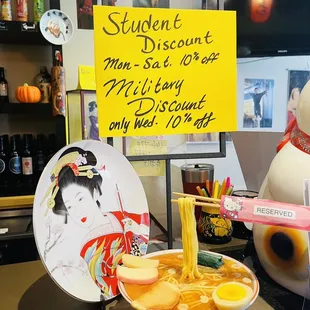 Student
Discount
Mon-Sat. 10% off
Military
Discount
only Wed. 10% off
RESERVED